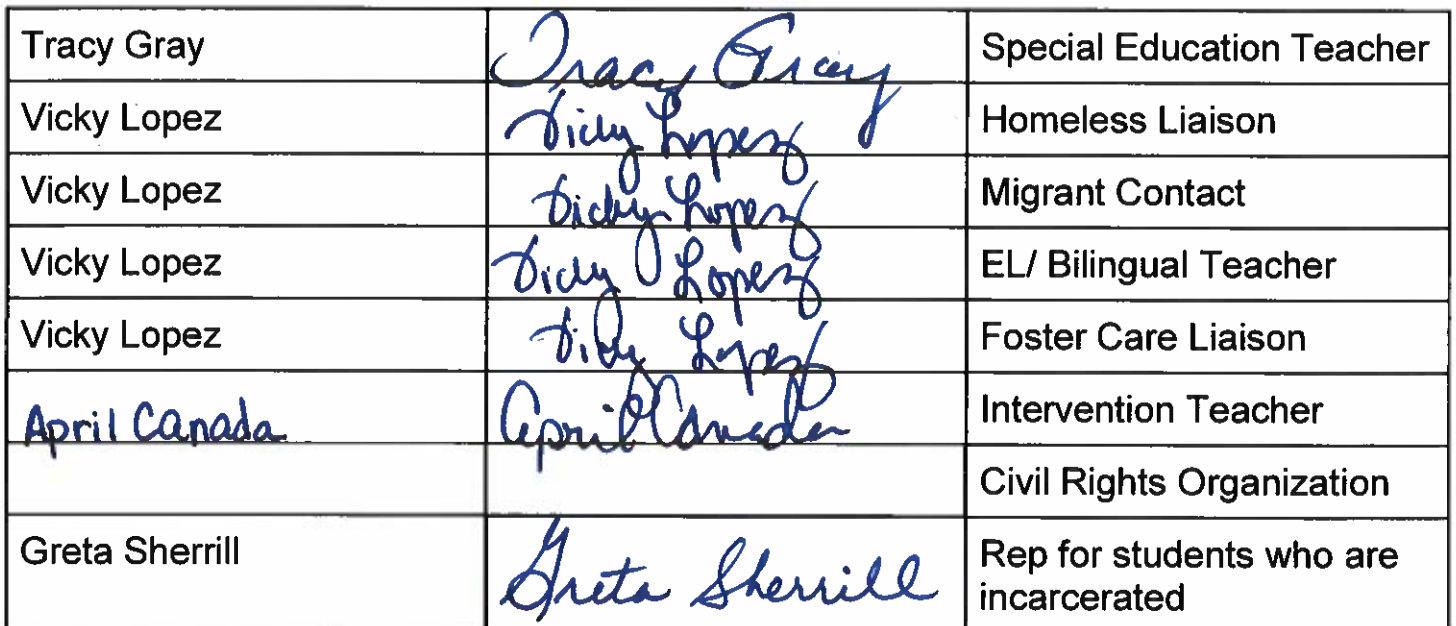 Tracy Gray Tracy Gray Special Education Teacher
Vicky Lopez Vicky Lopez Homeless Liaison
Vicky Lopez Vicky Lopez Migrant Contact
Vicky Lopez Vicky Lopez EL/ Bilingual Teacher
Vicky Lopez Vicky Lopez Foster Care Liaison
April Canada April Canada Intervention Teacher
Civil Rights Organization
Greta Sherrill Greta Sherrill Rep for students who are
incarcerated